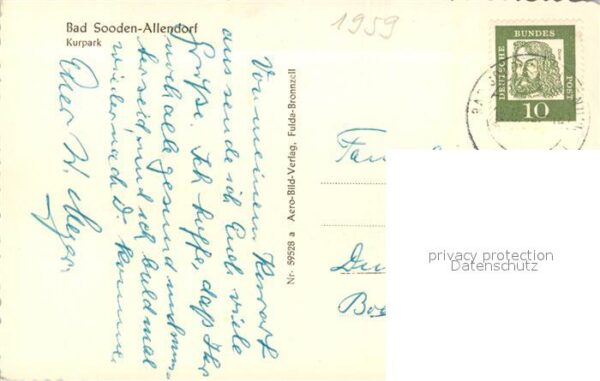 Bad Sooden-Allendorf
Kurpark
1959
DEUTSCHE
BUNDES
POST
10
Von meinem Kurort
aus sende ich Euch viele
Grüße. Ich hoffe, daß Ihr
noch alle gesund und mun-
ter seid, und ich bald mal
wieder nach D. komme.
Euer W. Meyer.
Nr. 59528 a Aero-Bild-Verlag, Fulda-Bronnzell
Fam
Du
Bo
privacy protection
Datenschutz